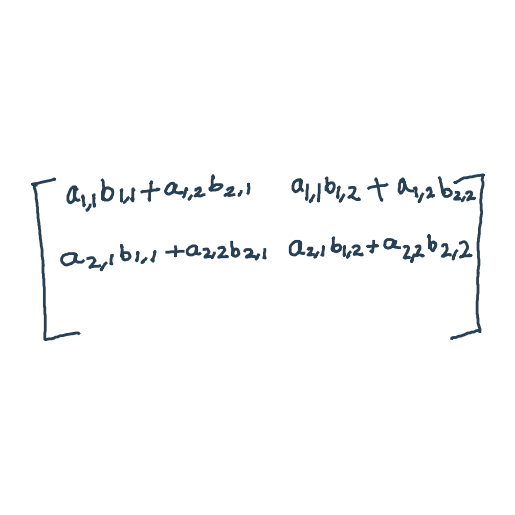 [a₁,₁b₁,₁+a₁,₂b₂,₁ a₁,₁b₁,₂+a₁,₂b₂,₂
a₂,₁b₁,₁+a₂,₂b₂,₁ a₂,₁b₁,₂+a₂,₂b₂,₂]